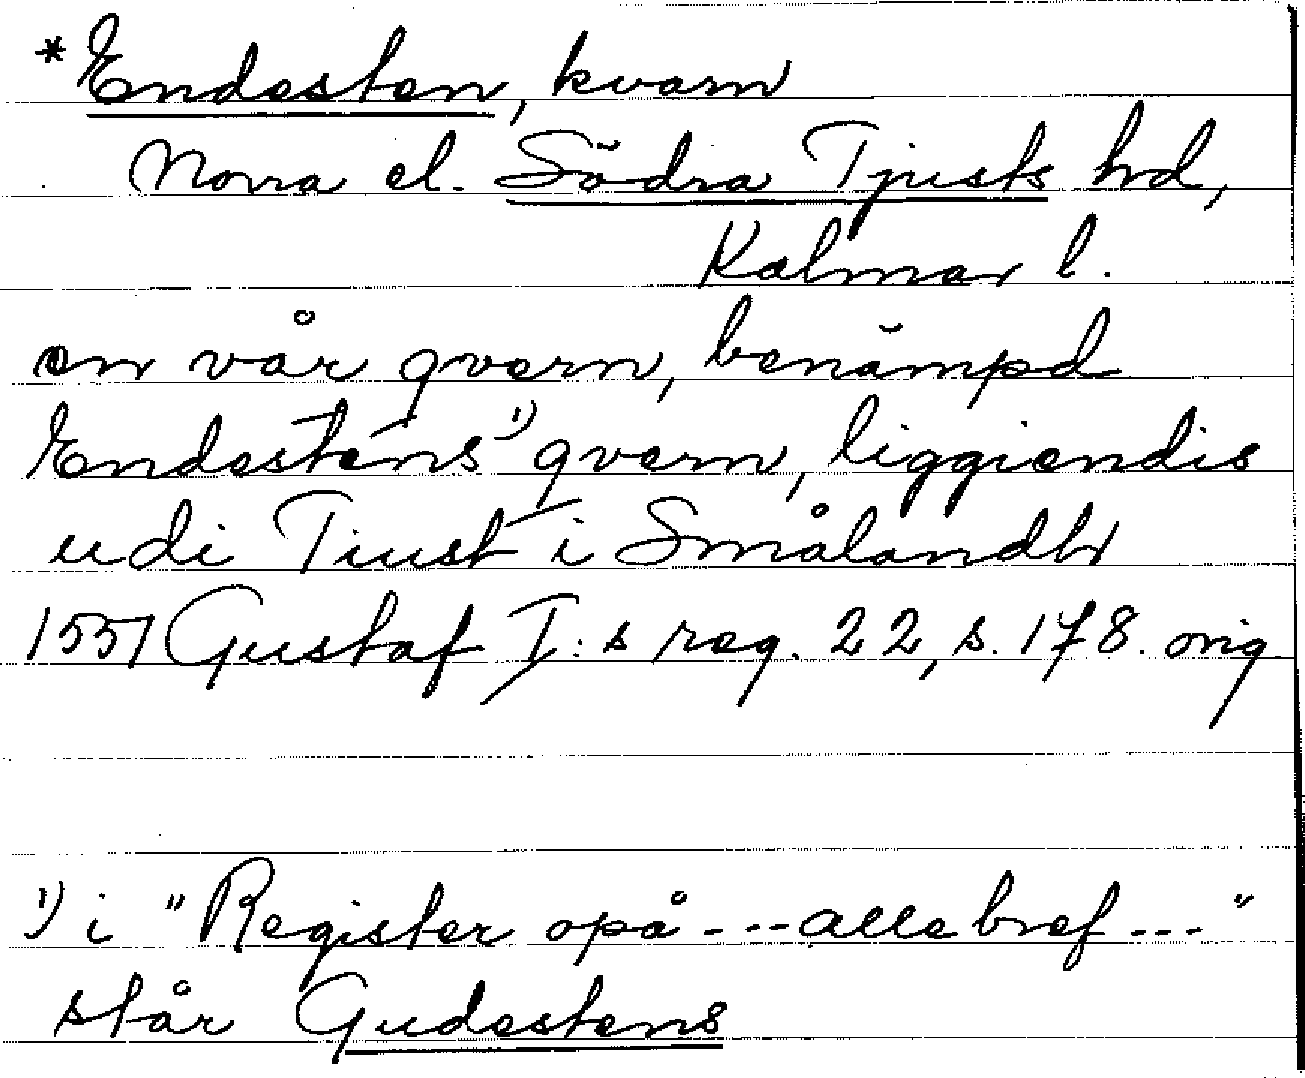 *Endesten, kvarn
Norra el. Södra Tjusts hd,
Kalmar l.
en vår qvern, benämpd
Endestens¹⁾ qvern, liggiendis
udi Tiust i Smålandh
1551 Gustaf I:s reg. 22, s. 178. orig
¹⁾ i "Register opå --- alle bref ---"
står Gudestens